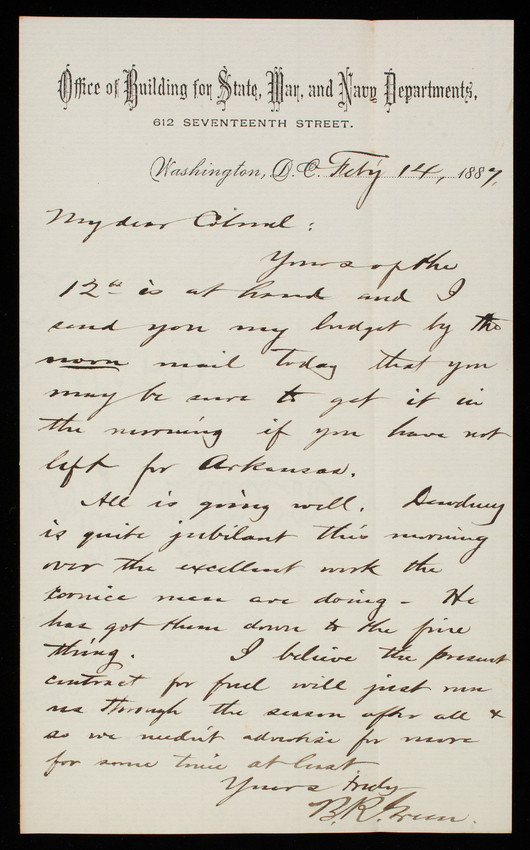 Office of Building for State, War, and Navy Departments,
612 SEVENTEENTH STREET.
Washington, D.C. Feb'y 14, 1887,
My dear Colonel:
Yours of the
12th is at hand and I
send you my budget by the
noon mail today that you
may be sure to get it in
the morning if you have not
left for Arkansas.
All is going well. Dewdney
is quite jubilant this morning
over the excellent work the
cornice men are doing - He
has got them down to the fine
thing. I believe the present
contract for fuel will just run
us through the season after all &
so we needn't advertise for more
for some time at least
Yours truly
B.R. Green.